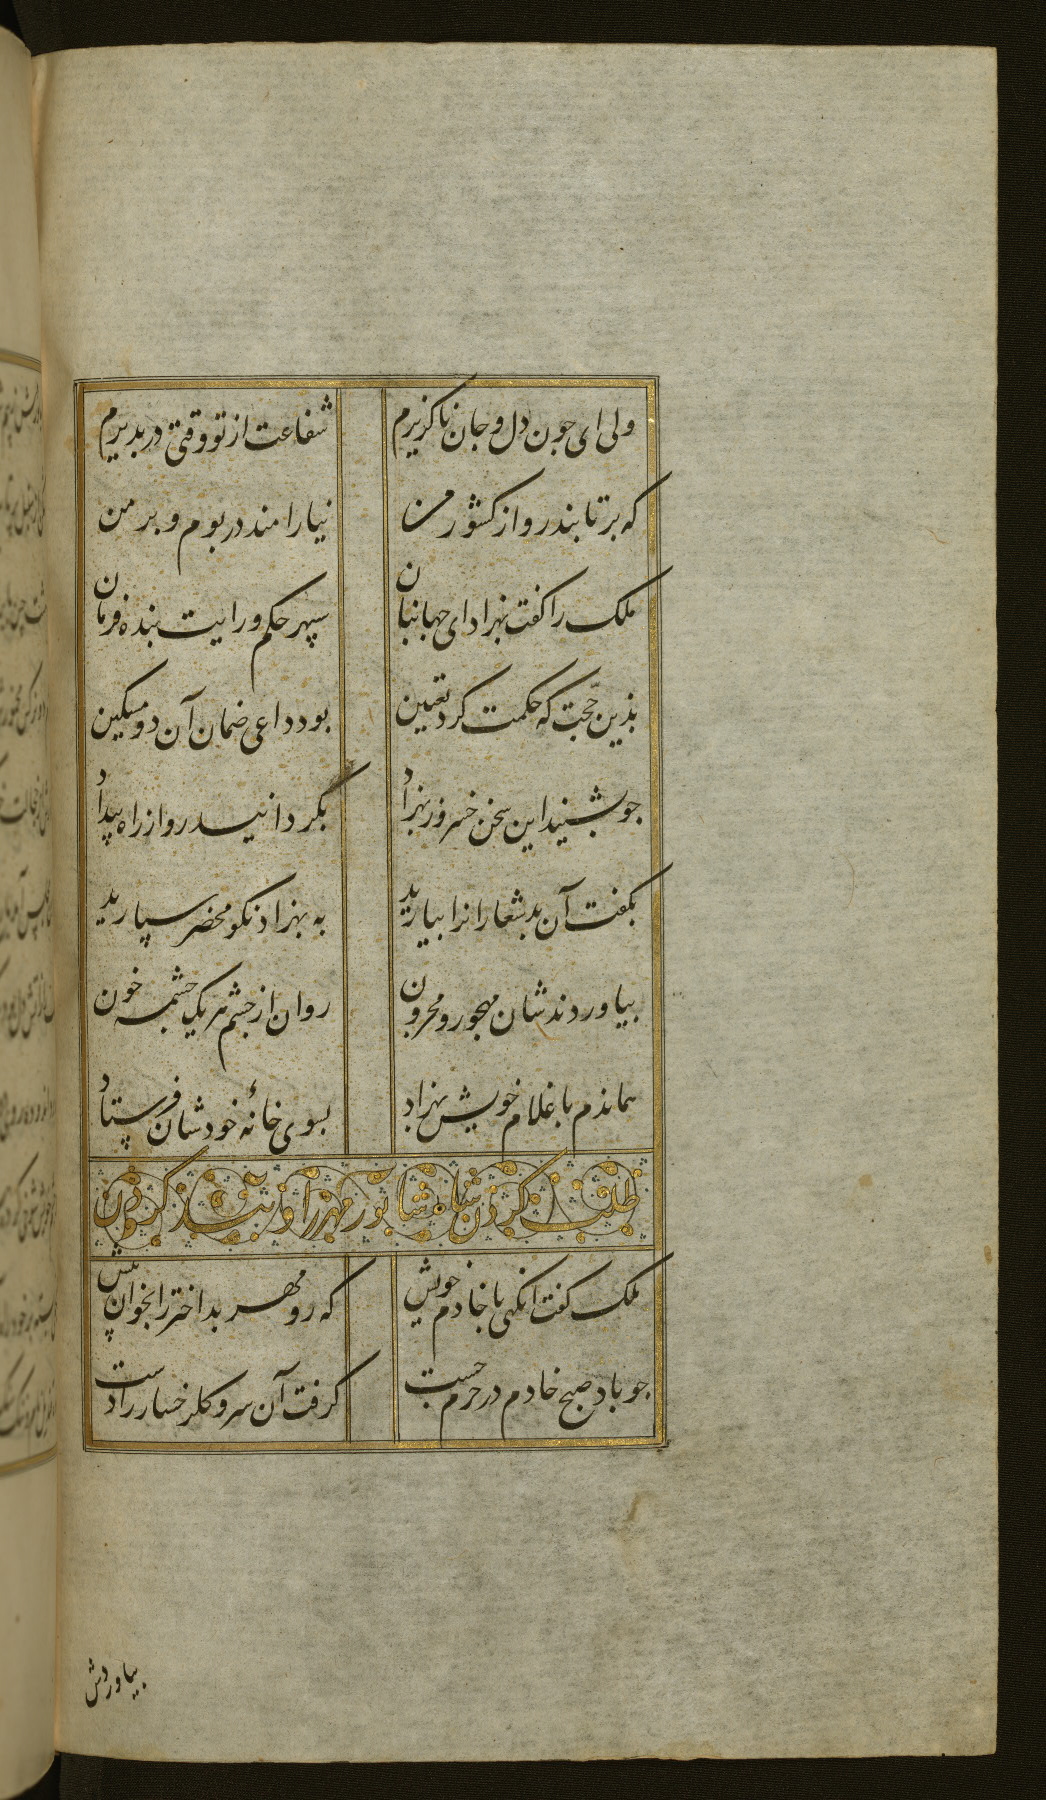 ولی ای جون دل و جان ناکزیرم شفاعت از تو وقتی در بدیرم
که برتابند رو از کشور من نیارامند در بوم و بر من
ملک را کفت بهزاد ای جهانبان سپهر حکم و رایت بنده فرمان
بذین حجت که حکمت کرد تعیین بود داعی ضمان آن دو مسکین
جو بشنید این سخن خسرو ز بهزاد بکردانید رو از راه بیداد
بکفت آن بد شعارانرا بیارید به بهزاد نکو محضر سپارید
بیاوردندشان مهجور و محزون روان از جشم هر یک جشمه خون
هماندم با غلام خویش بهزاد بسوی خانهٔ خودشان فرستاد
طلب کردن شاه شابور مهر را و بند کردن
ملک کفت انکهی با خادم خویش که رو مهر بداختر را بخوان پیش
جو باد صبح خادم در حرم جست کرفت آن سرو کلرخسار را دست
بیاوردش